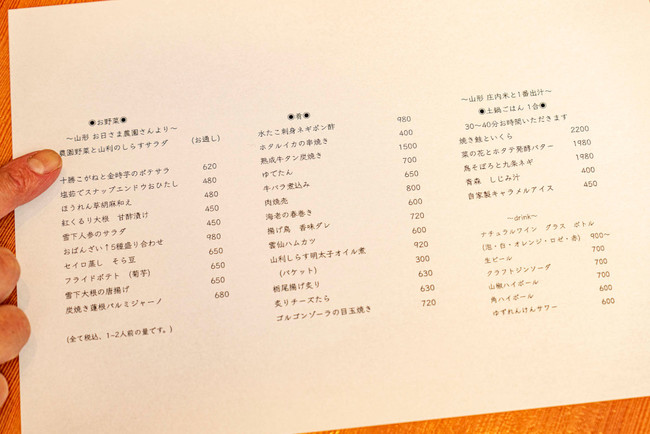 ◉お野菜◉
〜山形 お日さま農園さんより〜
農園野菜と山利のしらすサラダ (お通し)
十勝こがねと金時亭のポテサラ 620
塩茹でスナップエンドウおひたし 480
ほうれん草胡麻和え 450
紅くるり大根 甘酢漬け 450
雪下人参のサラダ 450
おばんざい↑5種盛り合わせ 980
セイロ蒸し そら豆 650
フライドポテト (菊芋) 650
雪下大根の唐揚げ 650
炭焼き蓮根パルミジャーノ 680
(全て税込、1~2人前の量です。)
◉肴◉
水たこ刺身ネギポン酢 980
ホタルイカの串焼き 400
熟成牛タン炭焼き 1500
ゆでたん 700
牛バラ煮込み 650
肉焼売 800
海老の春巻き 600
揚げ鳥 香味ダレ 720
雲仙ハムカツ 600
山利しらす明太子オイル煮 920
(バケット) 300
栃尾揚げ炙り 630
炙りチーズたら 630
ゴルゴンゾーラの目玉焼き 720
〜山形 庄内米と1番出汁〜
◉土鍋ごはん 1合◉
30〜40分お時間いただきます
焼き鮭といくら 2200
菜の花とホタテ発酵バター 1980
鳥そぼろと九条ネギ 1980
青森 しじみ汁 400
自家製キャラメルアイス 450
〜drink〜
ナチュラルワイン グラス ボトル
(泡・白・オレンジ・ロゼ・赤) 900〜
生ビール 700
クラフトジンソーダ 700
山椒ハイボール 700
角ハイボール 600
ゆずれんけんサワー 600